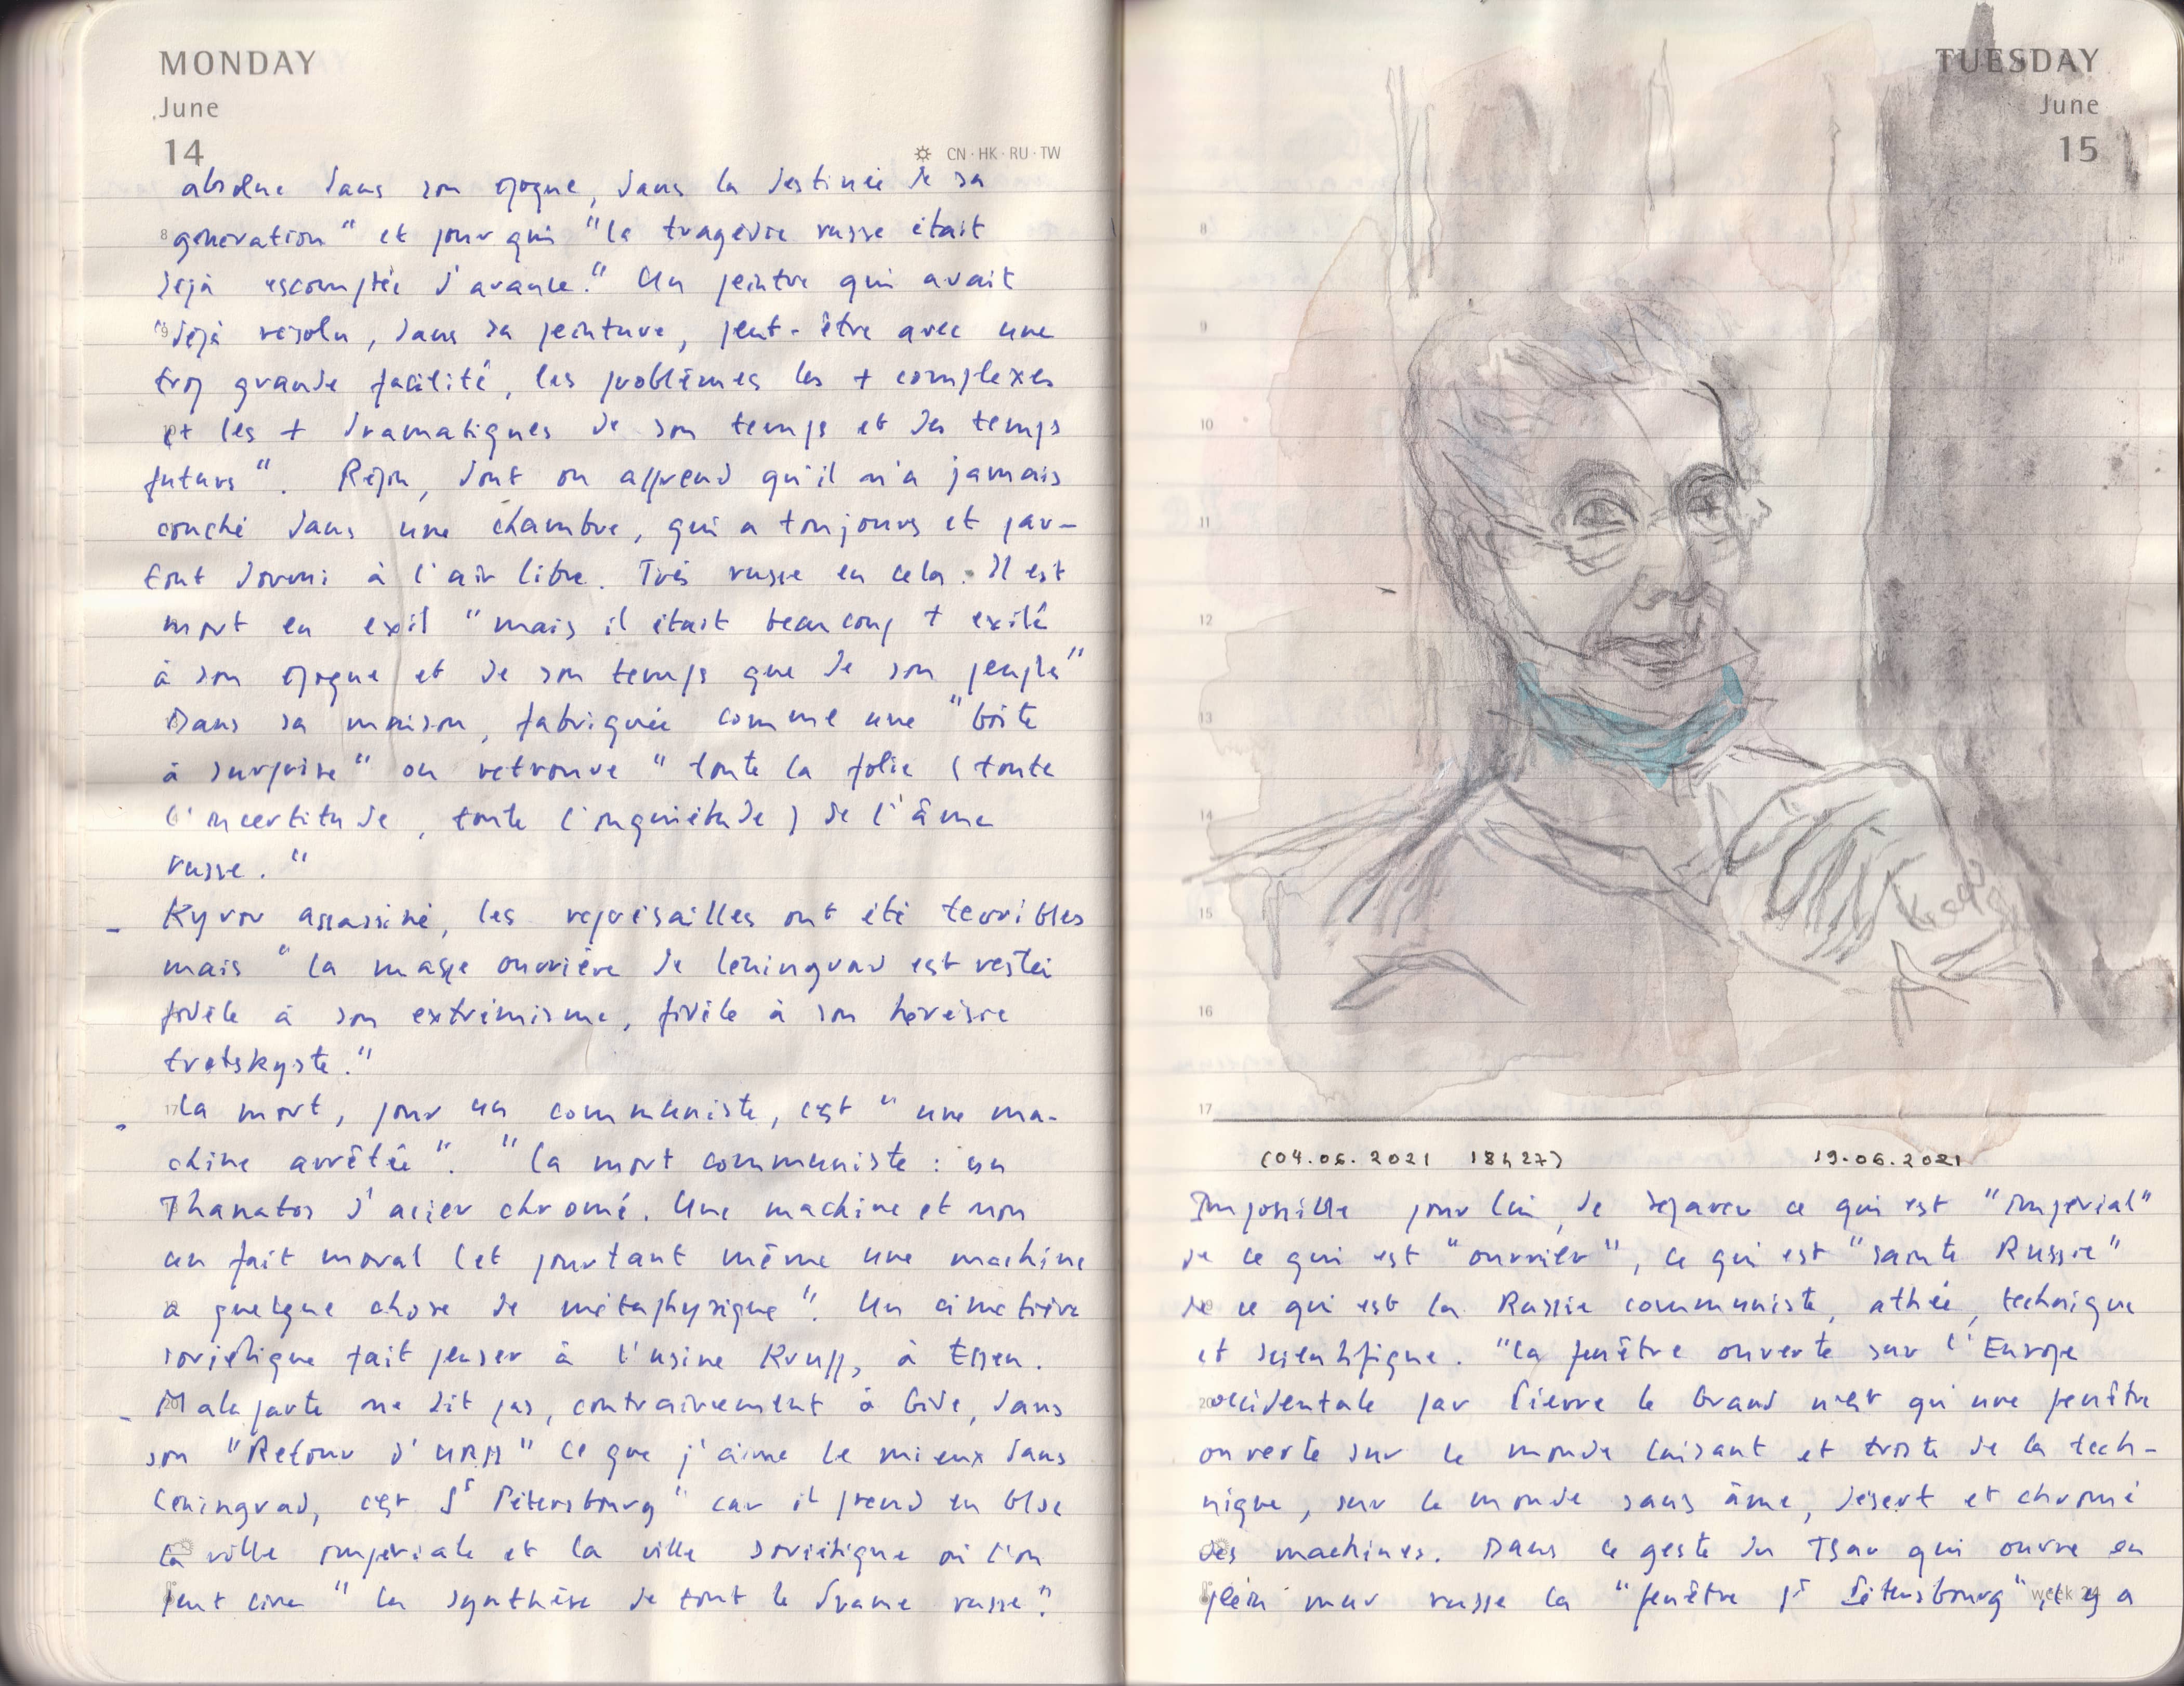 MONDAY
June
14
CN · HK · RU · TW
absolue dans son époque, dans la destinée de sa
8
génération" et pour qui "la tragédie russe était
déjà escomptée d'avance." Un peintre qui avait
9
"déjà résolu, dans sa peinture, peut-être avec une
trop grande facilité, les problèmes les + complexes
et les + dramatiques de son temps et des temps
futurs". Répin, dont on apprend qu'il n'a jamais
couché dans une chambre, qui a toujours et par-
tout dormi à l'air libre. Très russe en cela. Il est
mort en exil "mais il était beaucoup + exilé
à son époque et de son temps que de son peuple"
Dans sa maison, fabriquée comme une "boîte
à surprise" on retrouve "toute la folie (toute
l'incertitude, toute l'inquiétude) de l'âme
russe."
- Kyrov assassiné, les représailles ont été terribles
mais "la masse ouvrière de Leningrad est restée
fidèle à son extrémisme, fidèle à son hérésie
trotskyste."
17
- La mort, pour un communiste, c'est "une ma-
chine arrêtée". "La mort communiste : un
Thanatos d'acier chromé. Une machine et non
un fait moral (et pourtant même une machine
a quelque chose de métaphysique". Un cimetière
soviétique fait penser à l'usine Krupp, à Essen.
20
- Malaparte ne dit pas, contrairement à Gide, dans
son "Retour d'URSS" "Ce que j'aime le mieux dans
Leningrad, c'est St Pétersbourg" car il prend en bloc
la ville impériale et la ville soviétique où l'on
peut lire "la synthèse de tout le drame russe".
TUESDAY
June
15
8
9
10
11
12
13
14
15
16
17
(04.06.2021 18h27) 19.06.2021
Impossible pour lui de séparer ce qui est "impérial"
de ce qui est "ouvrier", ce qui est "sainte Russie"
de ce qui est la Russie communiste, athée, technique
et scientifique. "La fenêtre ouverte sur l'Europe
20
occidentale par Pierre le Grand n'est qu'une fenêtre
ouverte sur le monde luisant et triste de la tech-
nique, sur le monde sans âme, désert et chromé
des machines. Dans ce geste du Tsar qui ouvre en
plein mur russe la "fenêtre St Pétersbourg", il y a
week 24